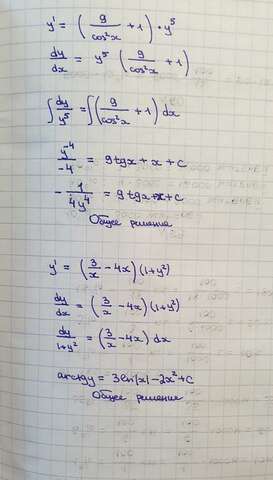 y' = (9/cos²x + 1) · y⁵
dy/dx = y⁵ (9/cos²x + 1)
∫ dy/y⁵ = ∫(9/cos²x + 1) dx
y⁻⁴/-4 = 9tgx + x + c
- 1/4y⁴ = 9tgx + x + c
Общее решение
y' = (3/x - 4x)(1+y²)
dy/dx = (3/x - 4x)(1+y²)
dy/1+y² = (3/x - 4x) dx
arctgy = 3ln|x| - 2x² + C
Общее решение